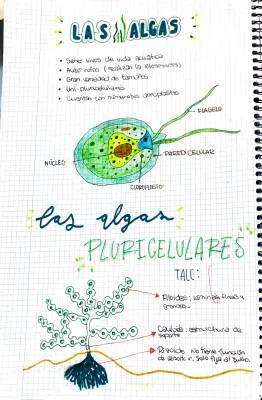 LAS ALGAS
• Seres vivos de vida acuática
• Autótrofos (realizan la fotosíntesis)
• Gran variedad de tamaños
• Uni-pluricelulares
• Cuentan con numerosos cloroplastos
FLAGELO
PARED CELULAR
NÚCLEO
CLOROPLASTO
las algas
PLURICELULARES
TALO:
Filoides: láminas finas y
grandes.
Cauloide: estructura de
soporte
Rizoide: No tiene función
de absorber. Solo fija al suelo.